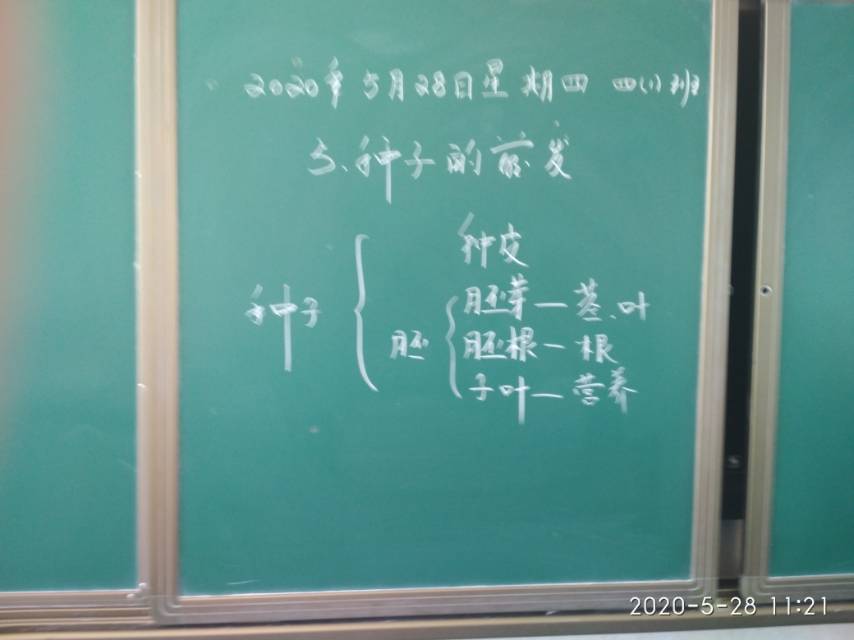 2020年5月28日星期四 四(1)班
5、种子的萌发
种皮
种子
胚芽—茎、叶
胚
胚根—根
子叶—营养
2020-5-28 11:21